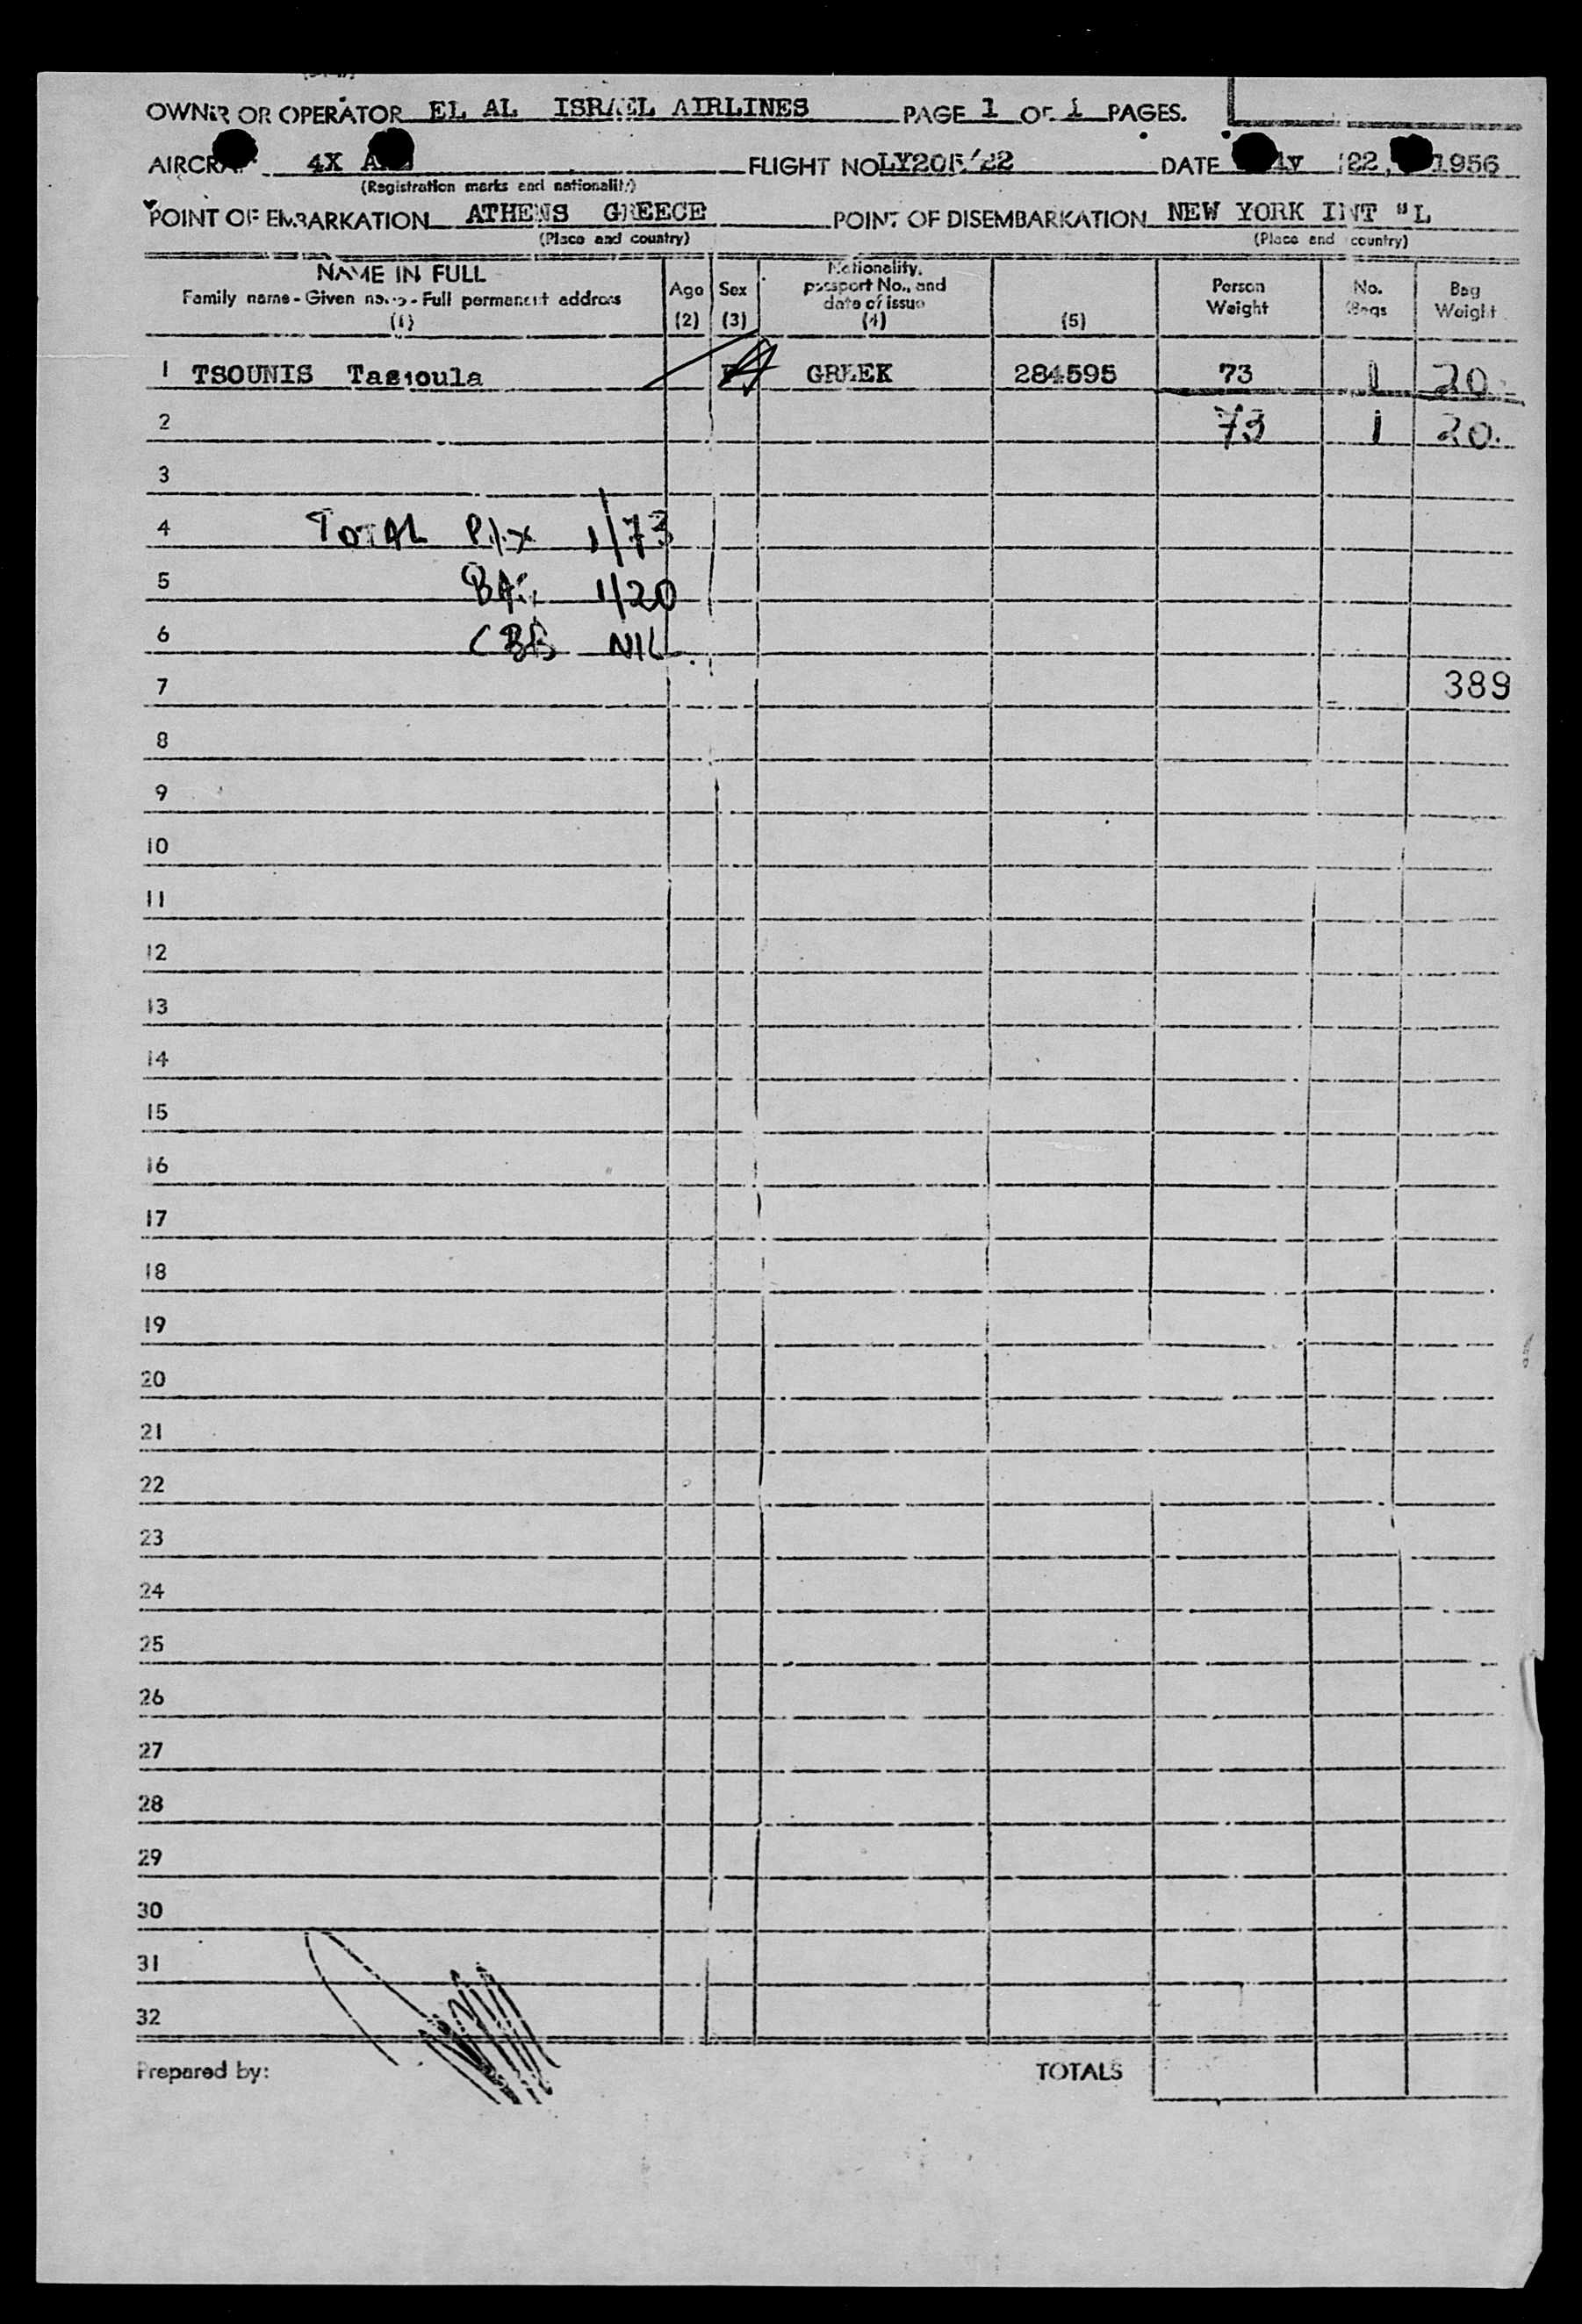 OWNER OR OPERATOR EL AL ISRAEL AIRLINES PAGE 1 OF 1 PAGES.
4X FLIGHT NO DATE 22, 1956
(Registration marks and nationality)
POINT OF EMBARKATION ATHENS GREECE POINT OF DISEMBARKATION NEW YORK INT "L
(Place and country) (Place and country)
NAME IN FULL Nationality,
Family name - Given name - Full permanent address Age Sex passport No., and Person No. Bag
date of issue Weight Bags Weight
(1) (2) (3) (4) (5)
1 TSOUNIS Tassoula GREEK 284595 73 1 20
2 73 1 20.
3
4 TOTAL PAX 1/73
5 BAG 1/20
6 NIL
7 389
8
9
10
11
12
13
14
15
16
17
18
19
20
21
22
23
24
25
26
27
28
29
30
31
32
Prepared by: TOTALS